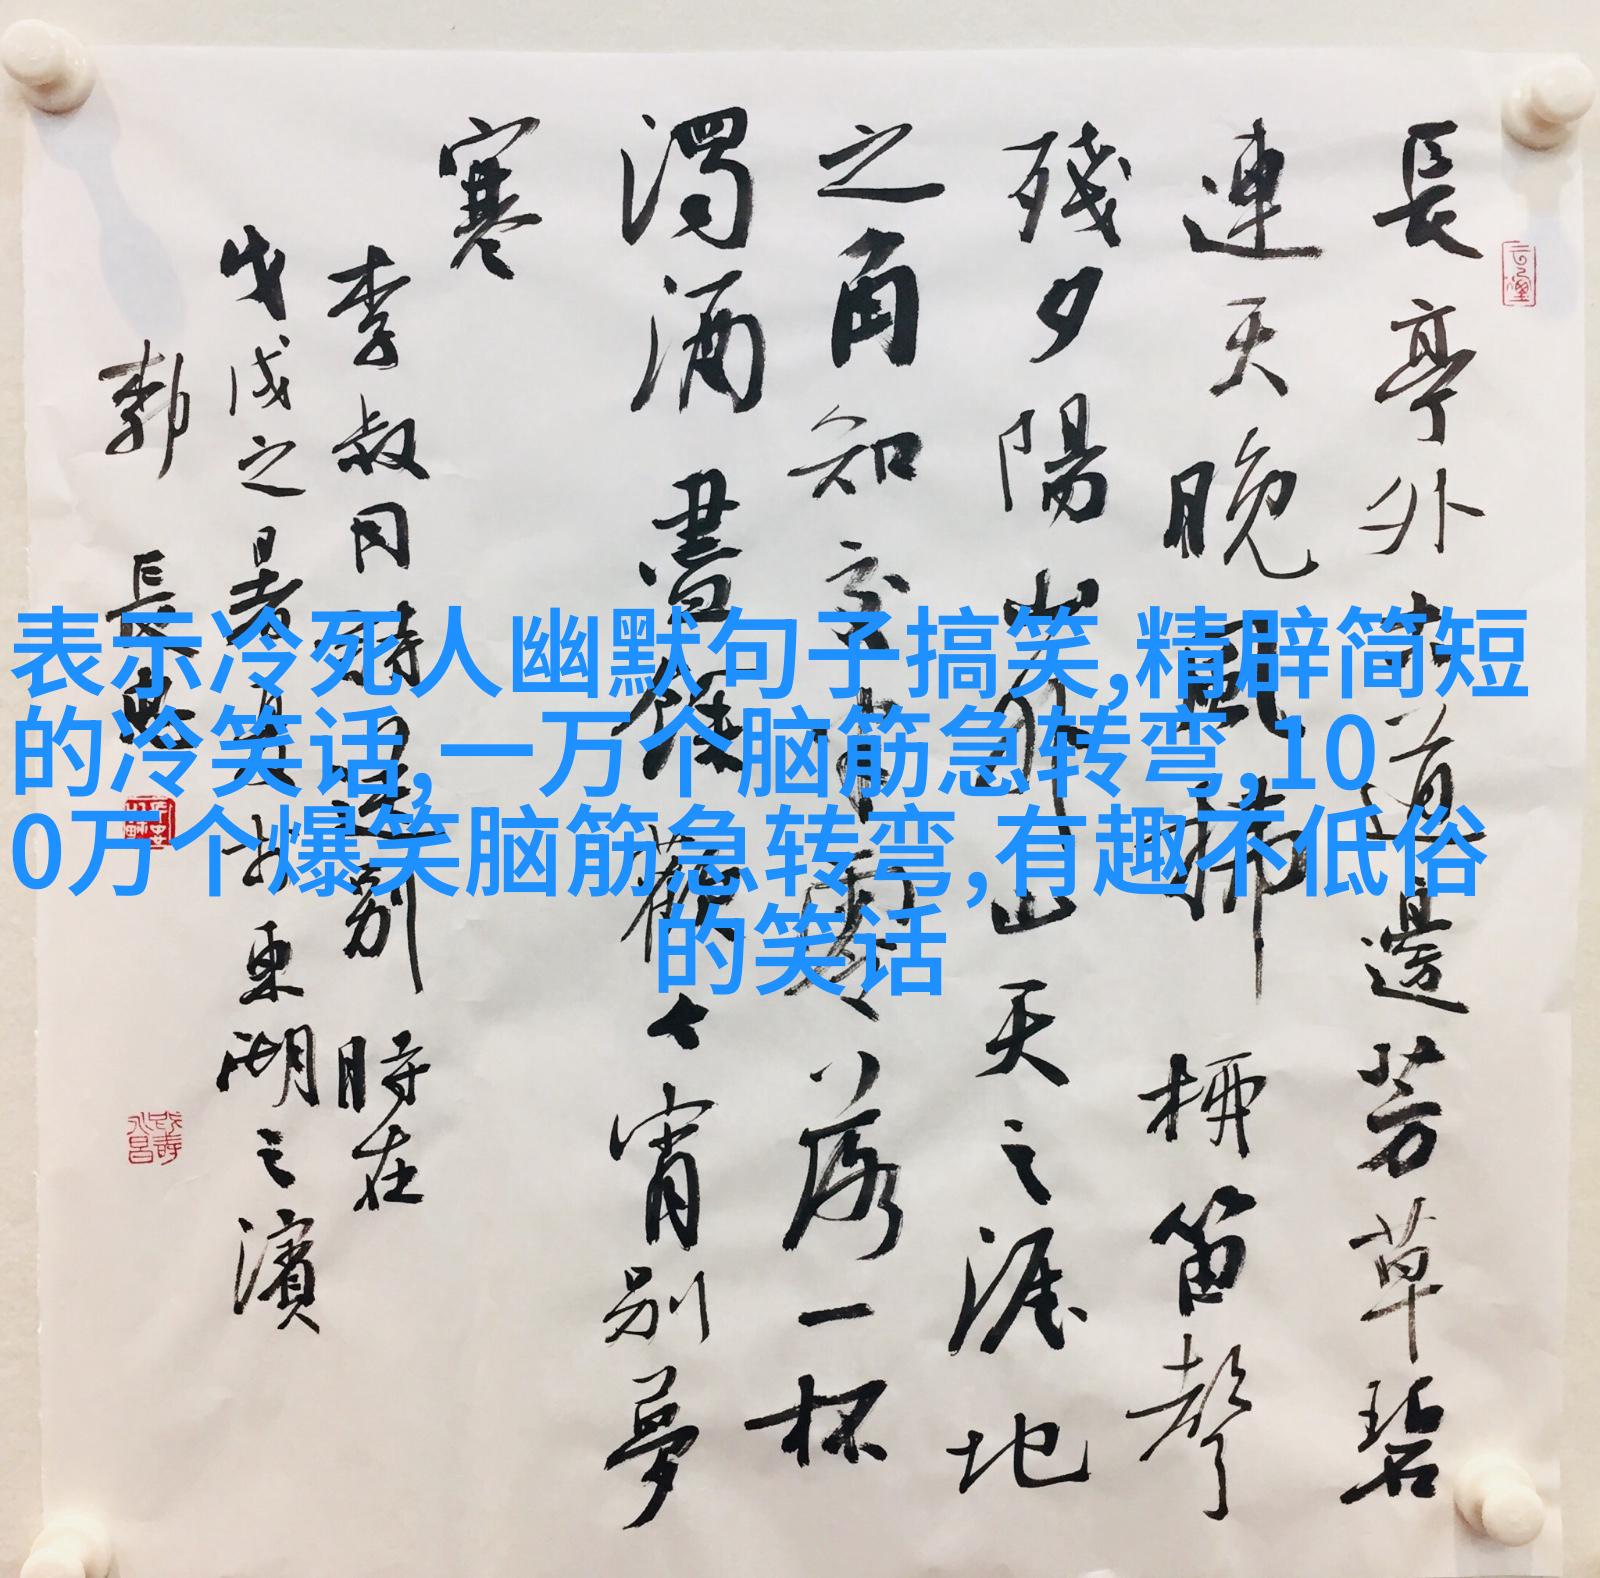 長亭外古道邊芳草碧
連天晚風拂柳笛聲
殘夕陽山外山天之涯地
之角知交半零落一杯
濁酒盡餘歡今宵別夢
寒
李叔同詩送別時在
戊戌之暑月於東湖之濱
長
表示冷死人幽默句子搞笑,精辟简短
的冷笑话,一万个脑筋急转弯,10
0万个爆笑脑筋急转弯,有趣不低俗
的笑话